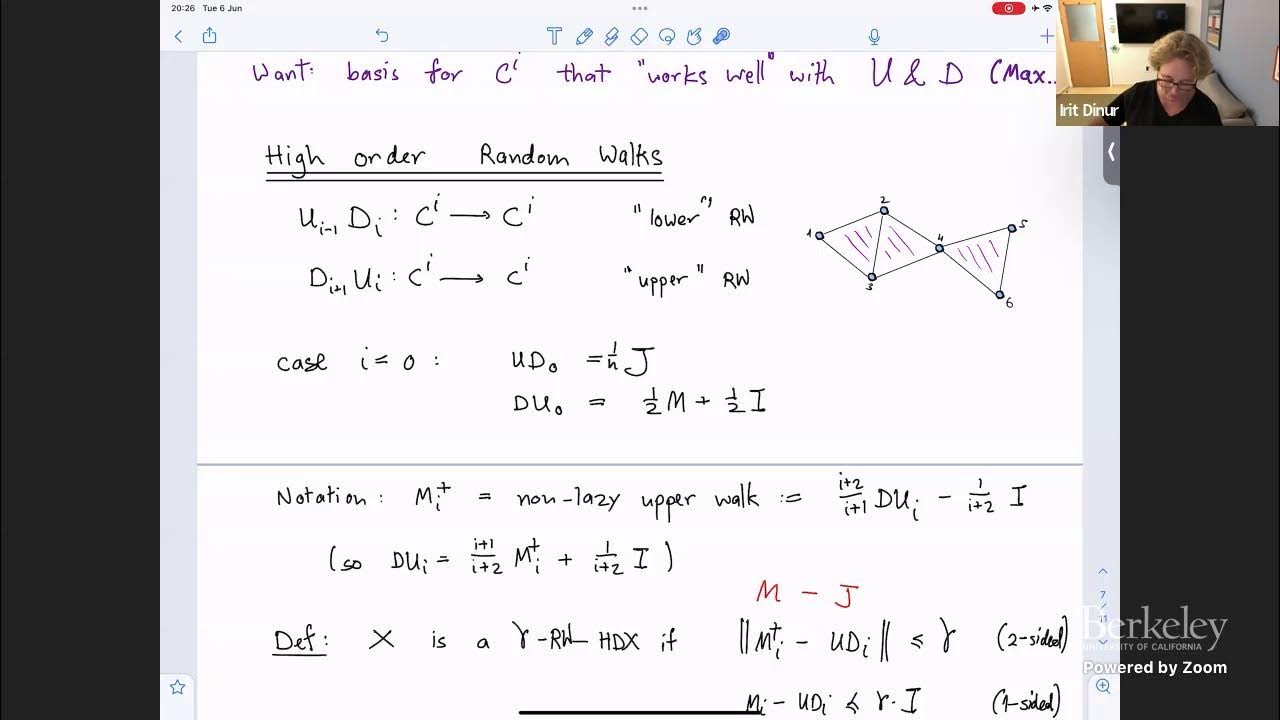 20:26 Tue 6 Jun
Want: basis for Cⁱ that "works well" with U & D (Max..
Irit Dinur
High order Random Walks
U_{i-1} D_i : Cⁱ ⟶ Cⁱ "lower" RW
D_{i+1} U_i : Cⁱ ⟶ Cⁱ "upper" RW
1 2 3 4 5 6
case i = 0 : UD₀ = 1/n J
DU₀ = 1/2 M + 1/2 I
Notation: M_i^+ = non-lazy upper walk := i+2/i+1 DU_i - 1/i+2 I
(so DU_i = i+1/i+2 M_i^+ + 1/i+2 I )
M - J
Def: X is a γ-RW HDX if ‖M_i^+ - UD_i‖ ≤ γ (2-sided)
M_i - UD_i ≼ γ·I (1-sided)
7
Berkeley
UNIVERSITY OF CALIFORNIA
Powered by Zoom